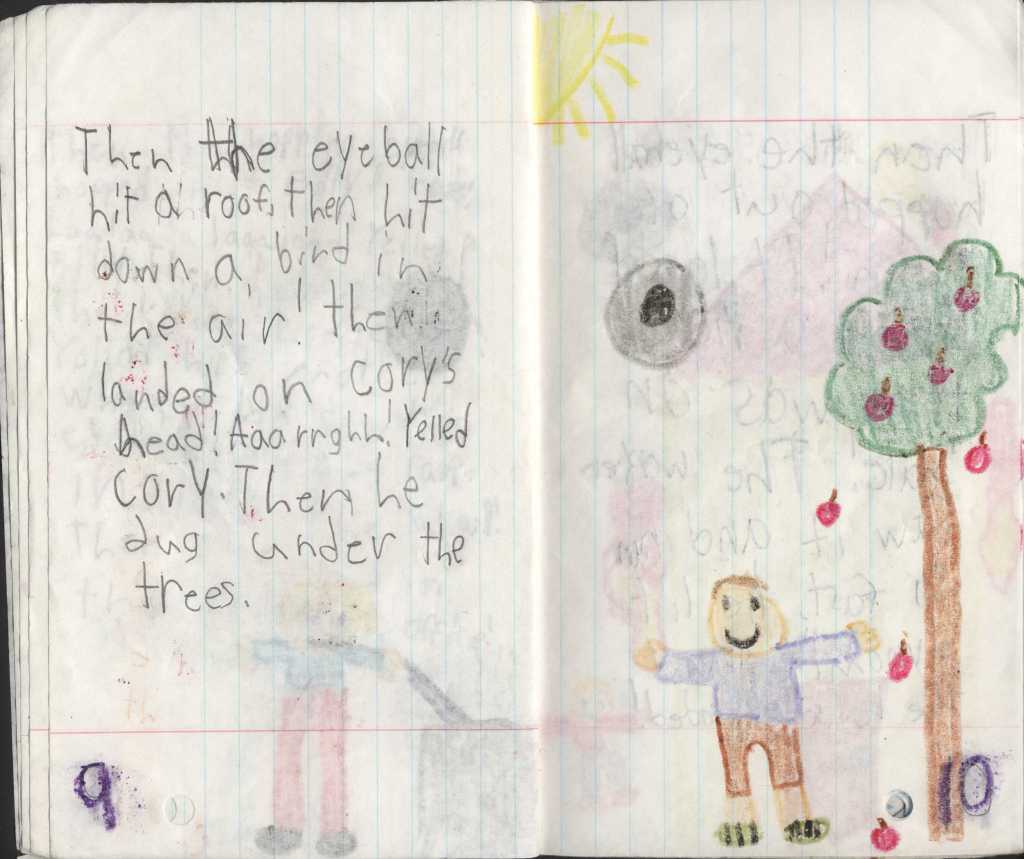 Then the eyeball
hit a roof, then hit
down a bird in
the air! then
landed on Cory's
head! Aaarrghh! Yelled
Cory. Then he
dug under the
trees.
9
10